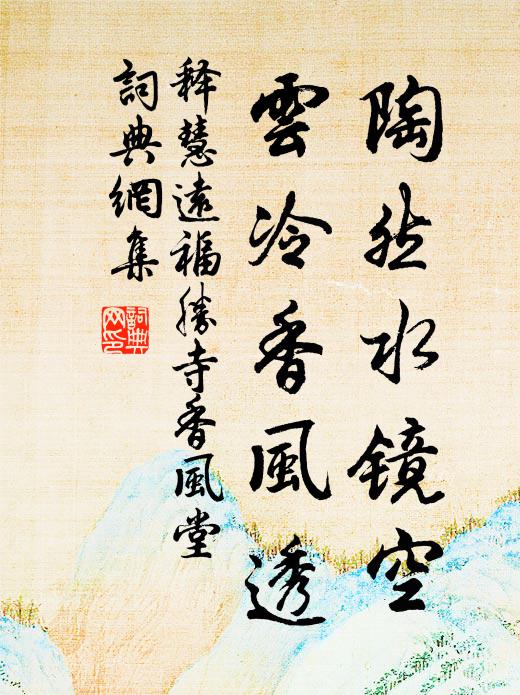 陶然水镜空
雲冷香風透
释慧遠福勝寺香風堂
詞典網集
詞典网印